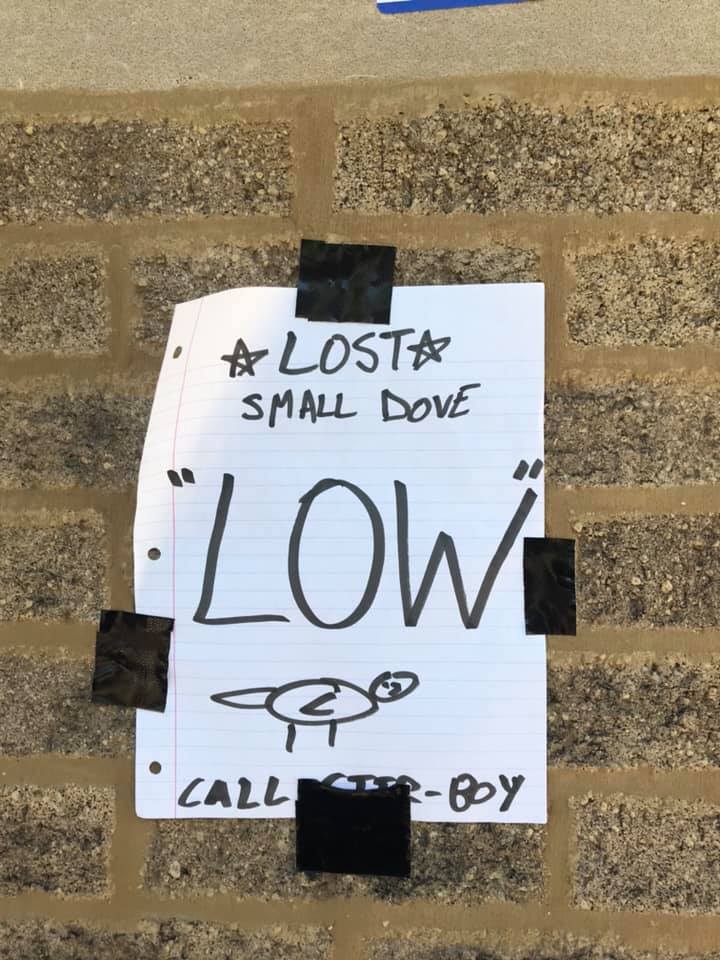 ☆ LOST ☆
SMALL DOVE
"LOW"
CALL -BOY